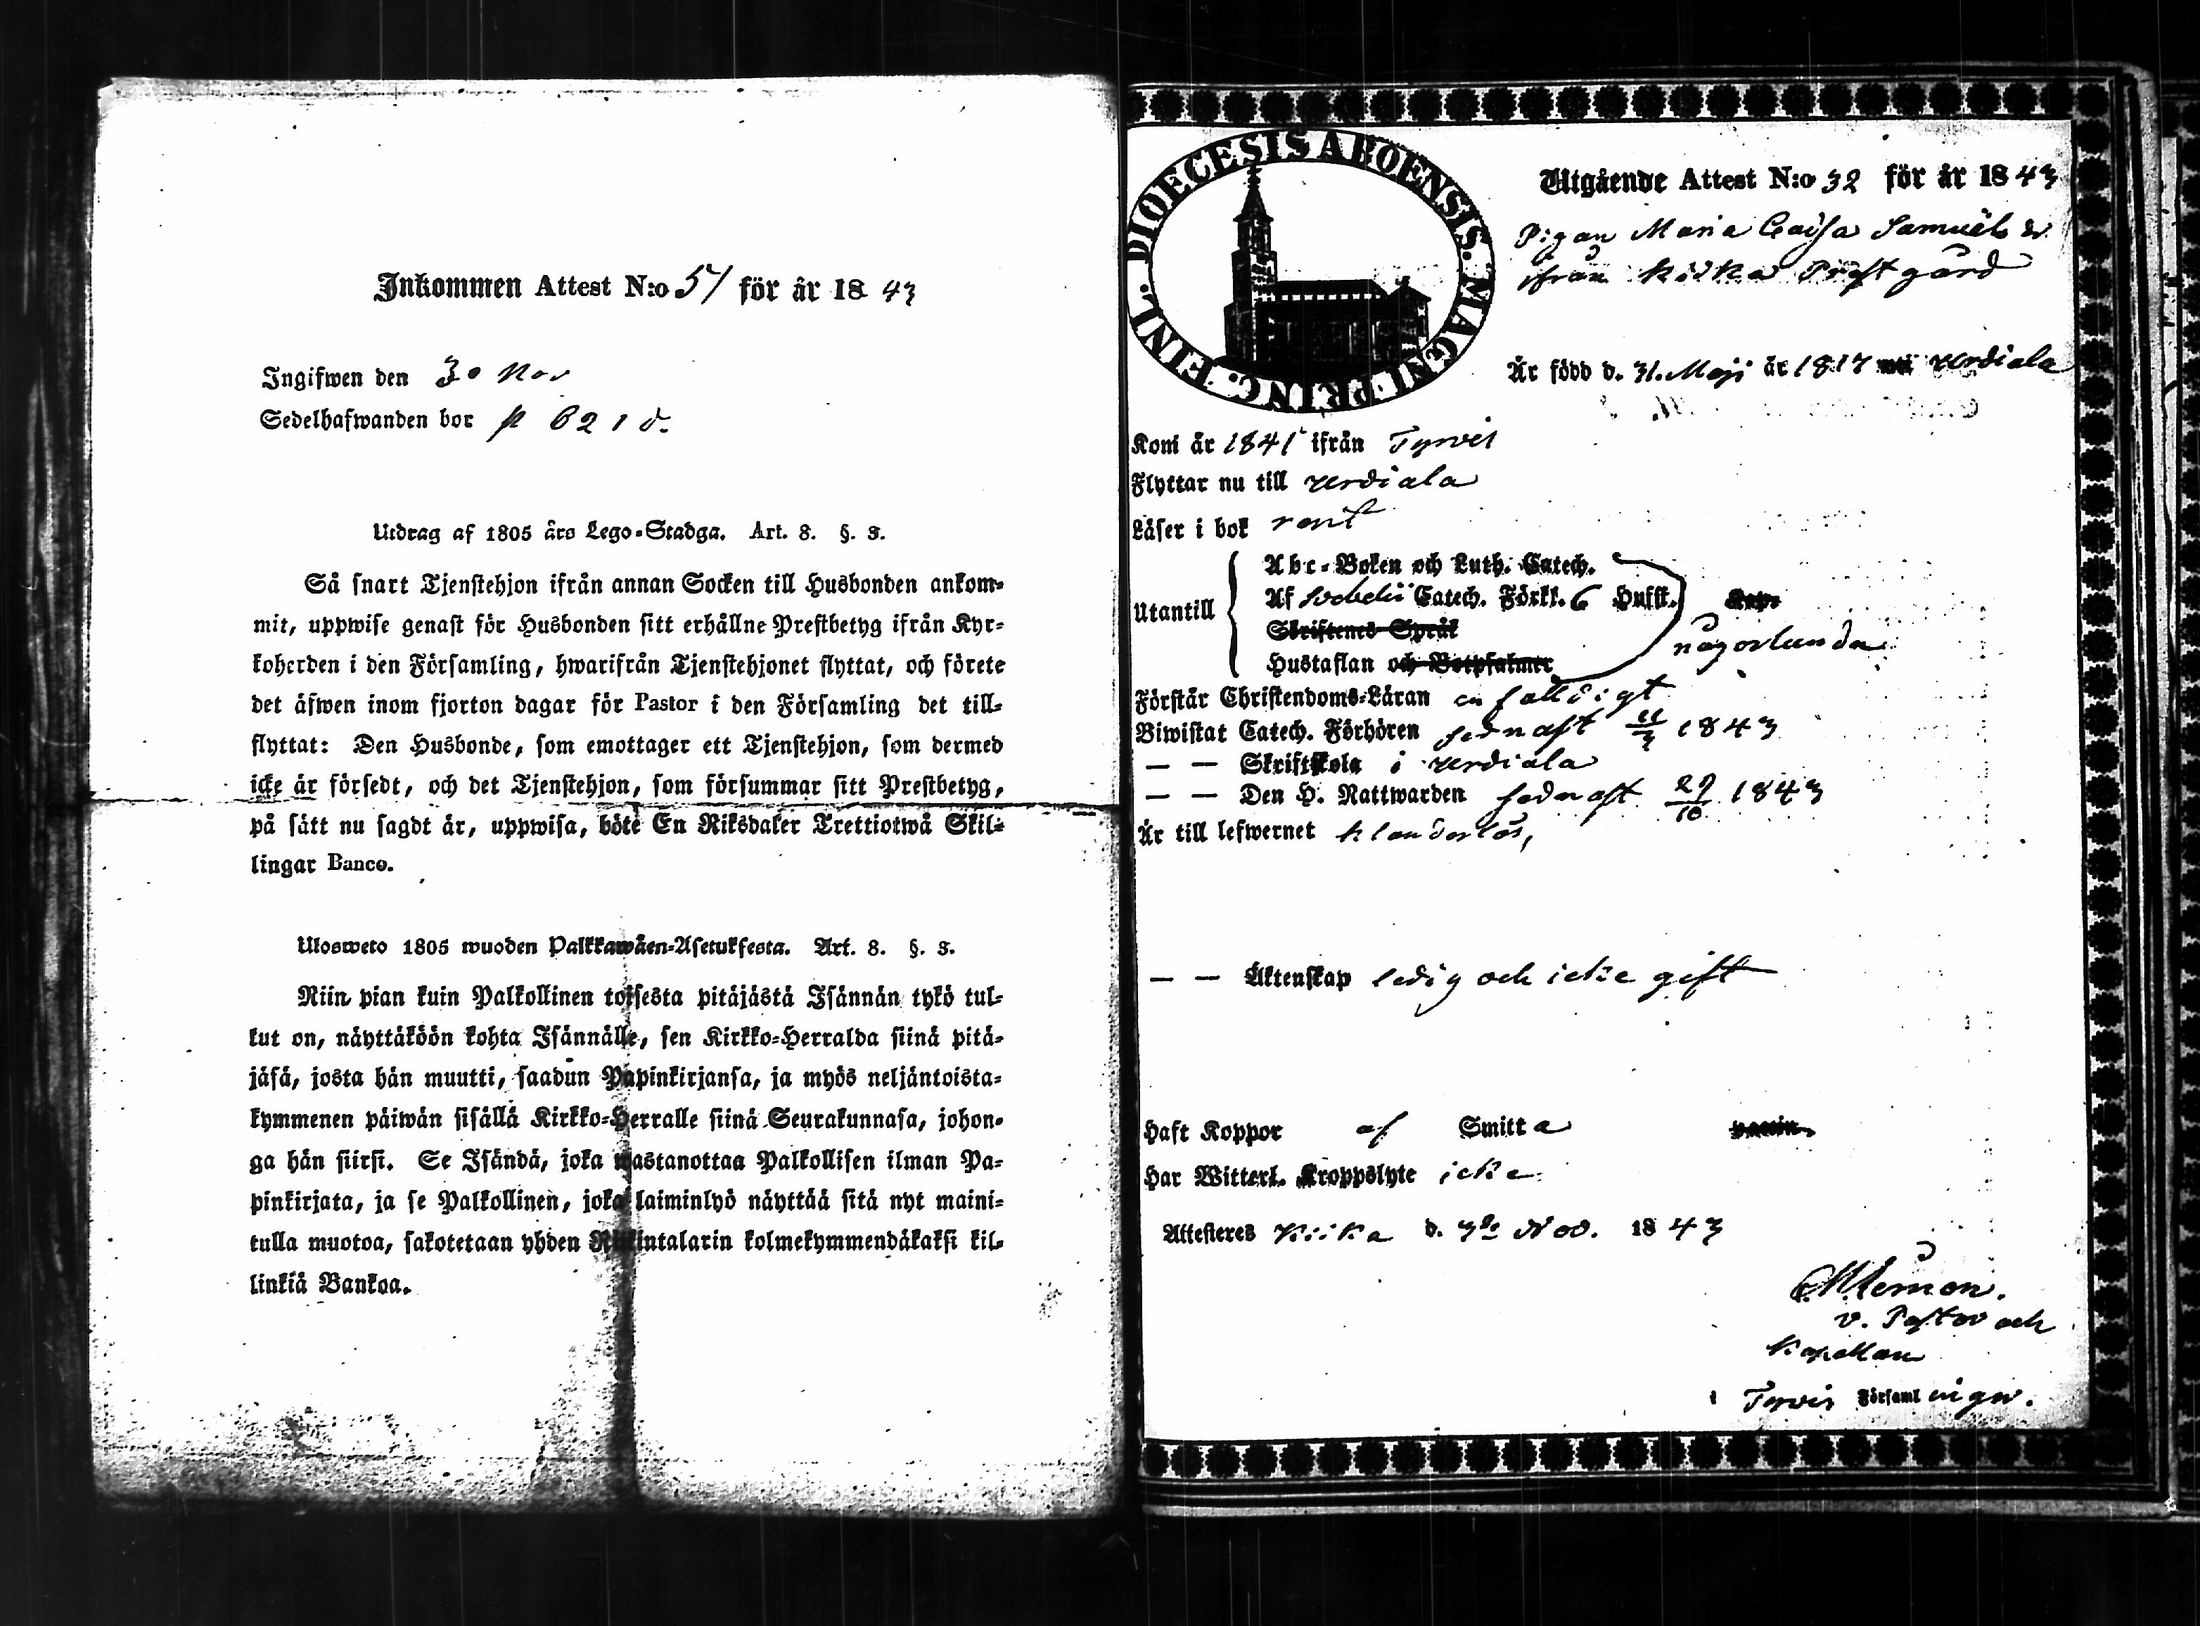 Inkommen Attest N:o 51 för år 1843
Ingifwen den 30 Nov
Sedelhafwanden bor p 621 d.
Utdrag af 1805 års Lego-Stadga. Art. 8. §. 3.
Så snart Tjenstehjon ifrån annan Socken till Husbonden ankom-
mit, uppwise genast för Husbonden sitt erhållne Prestbetyg ifrån Kyr-
koherden i den Församling, hwarifrån Tjenstehjonet flyttat, och förete
det äfwen inom fjorton dagar för Pastor i den Församling det till-
flyttat: Den Husbonde, som emottager ett Tjenstehjon, som dermed
icke är försedt, och det Tjenstehjon, som försummar sitt Prestbetyg,
på sätt nu sagdt är, uppwisa, böte En Riksdaler Trettiotwå Skil-
lingar Banco.
Ulosweto 1805 wuoden Palkkawäen-Asetuksesta. Art. 8. §. 3.
Niin pian kuin Palkollinen toisesta pitäjästä Isännän tykö tul-
lut on, näyttäköön kohta Isännälle, sen Kirkko-Herralda siinä pitä-
jäsä, josta hän muutti, saadun Papinkirjansa, ja myös neljäntoista-
kymmenen päiwän sisällä Kirkko-Herralle siinä Seurakunnasa, johon-
ga hän siirsi. Se Isändä, joka wastanottaa Palkollisen ilman Pa-
pinkirjata, ja se Palkollinen, joka laiminlyö näyttää sitä nyt maini-
tulla muotoa, sakotetaan yhden Riikintalarin kolmekymmendäkaksi kil-
linkiä Bankoa.
DIOECESIS ABOENSIS. MAGNI PRINC. FINL.
Utgående Attest N:o 32 för år 1843
Pigan Maria Cajsa Samuels dr
ifrån Kiika Prestgård
Är född d. 31. Maji år 1817 i Urdiala
Kom år 1841 ifrån Tyrvis
Flyttar nu till Urdiala
Läser i bok rent
Utantill
Abc-Boken och Luth. Catech.
Af Svebelii Catech. Förkl. 6 Hufst. Cap.
Skriftenes Språk
någorlunda
Hustaflan och Botpsalmer
Förstår Christendoms-Läran enfalldigt
Biwistat Catech. Förhören sednast 1843
— — Skriftskola i Urdiala
— — Den H. Nattwarden sednast 29/10 1843
Är till lefwernet klanderlös,
— — Äktenskap ledig och icke gift
Haft Koppor af Smitta vaccin.
Har Witterl. Kroppslyte icke
Attesteras Kiika d. 3e Nov. 1843
v. Pastor och
Kapellan
i Tyrvis Församlingar.